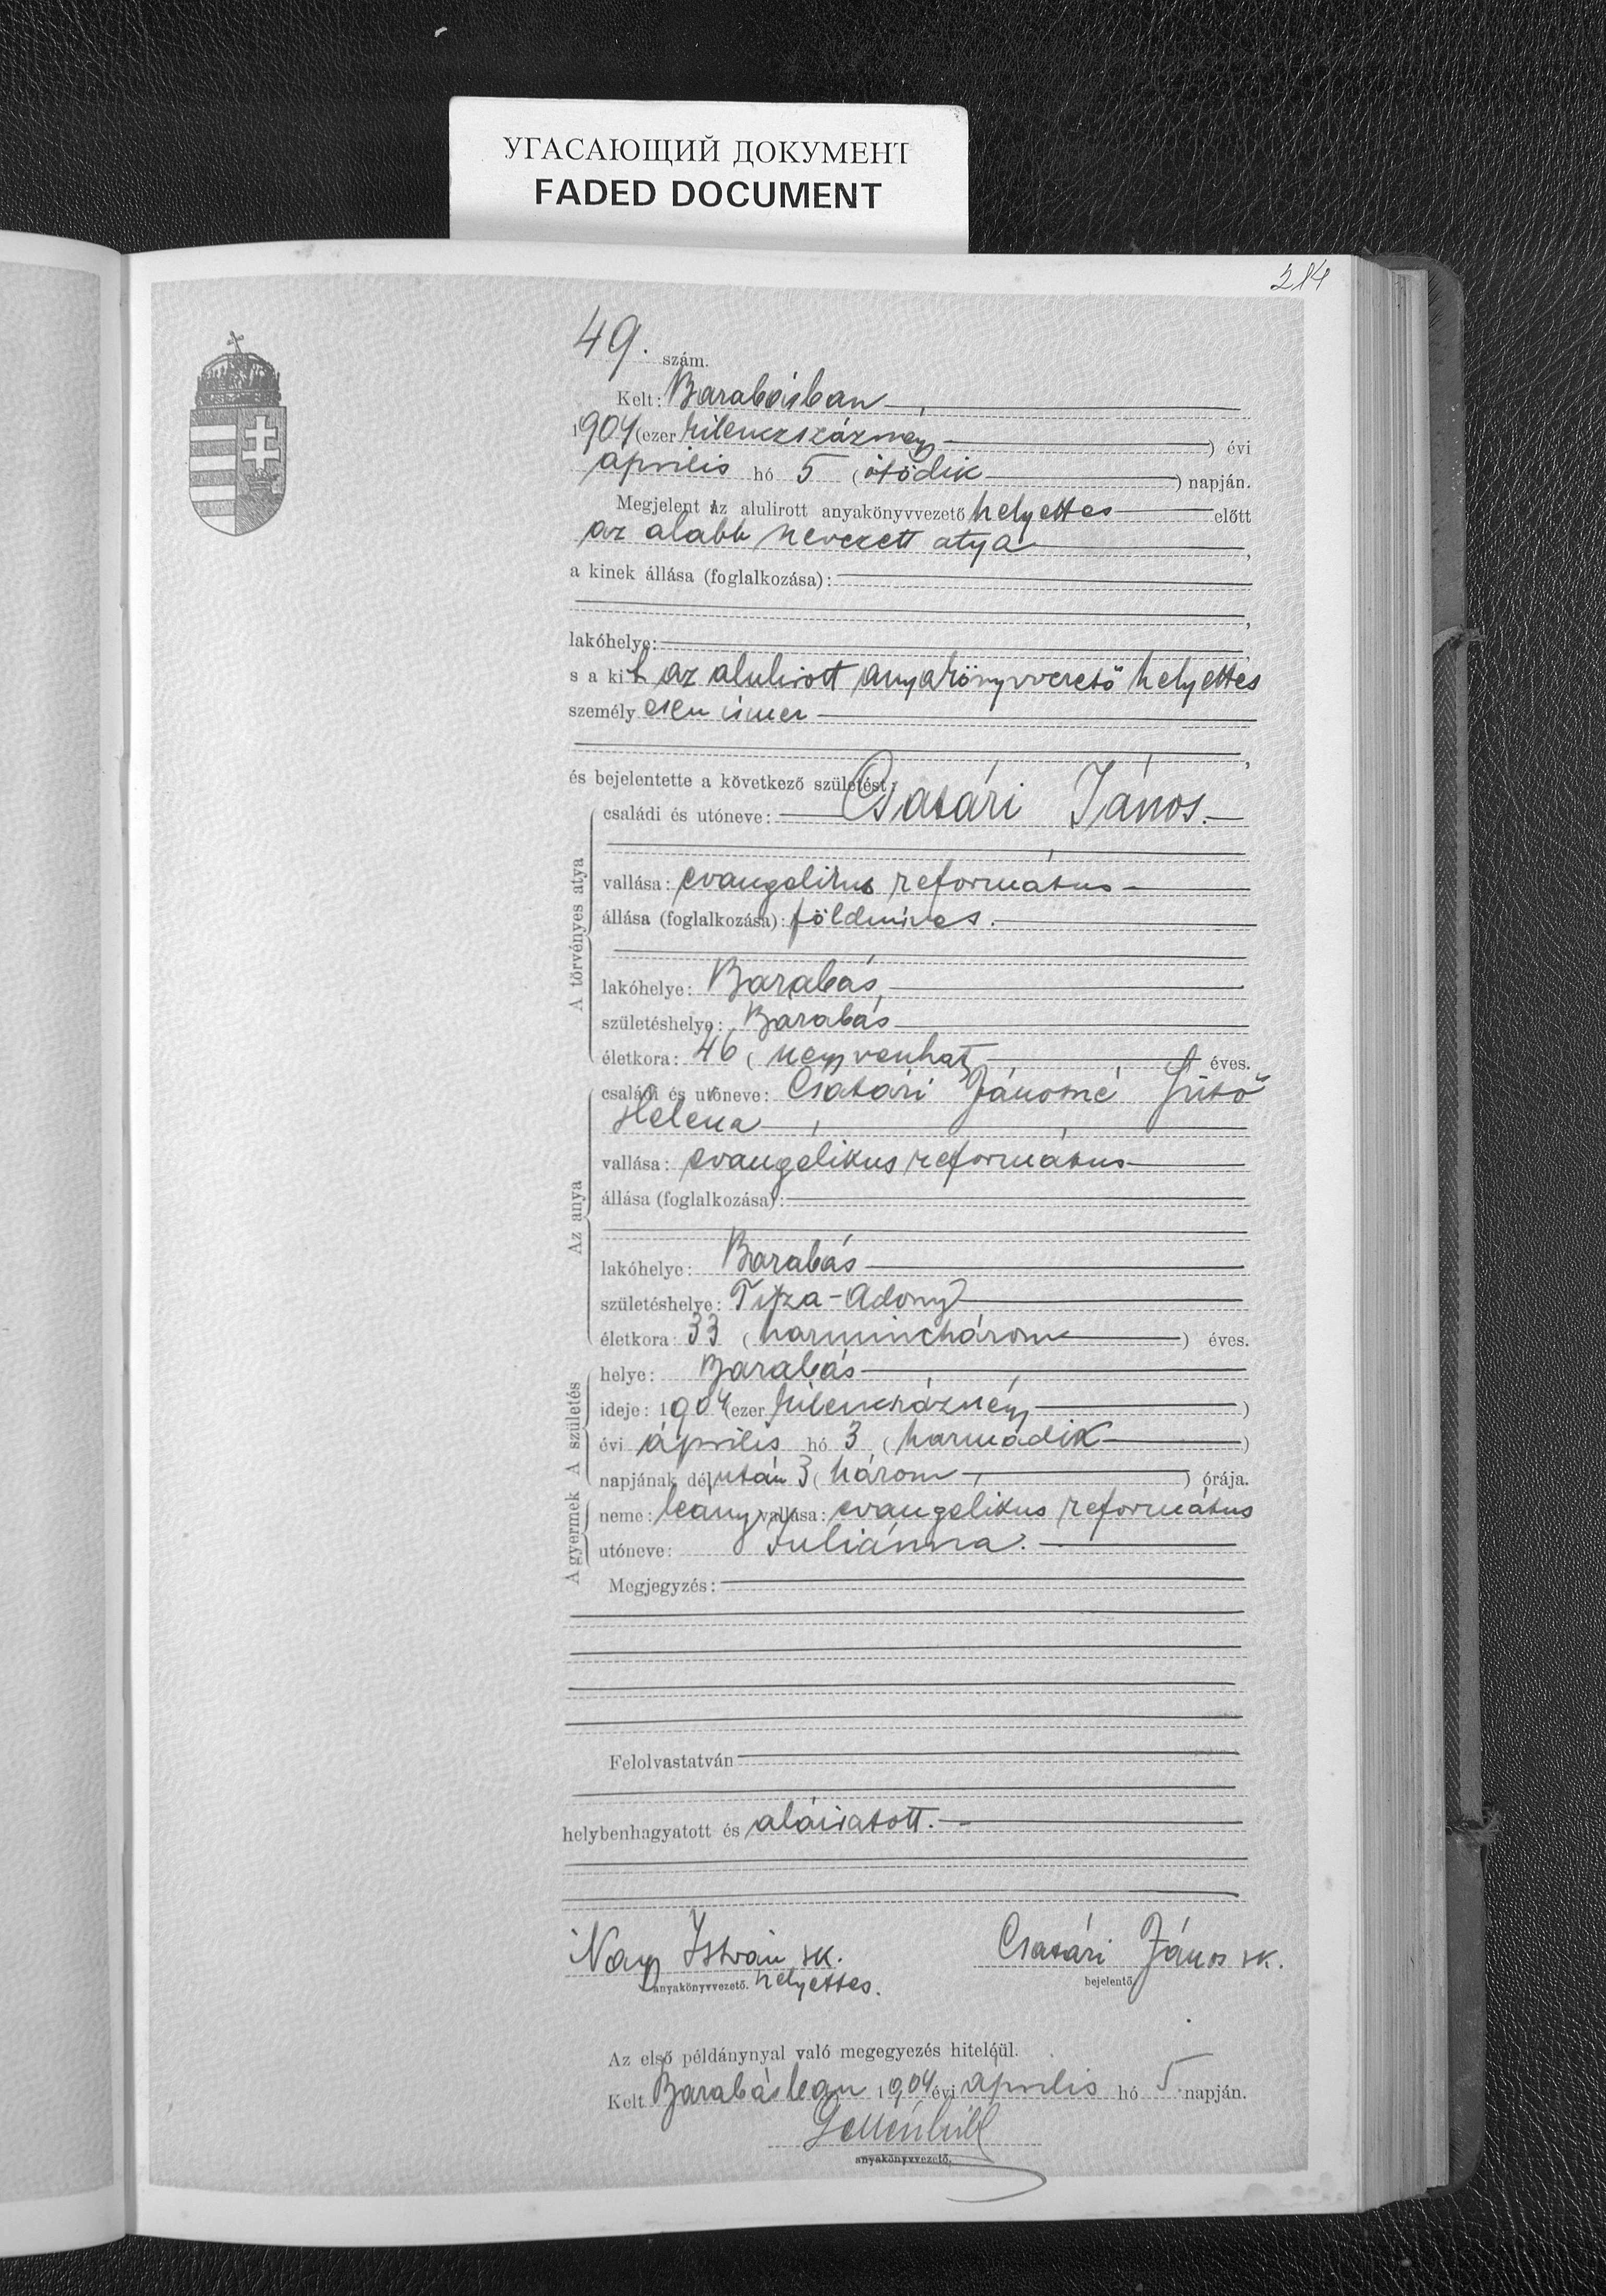 УГАСАЮЩИЙ ДОКУМЕНТ
FADED DOCUMENT
214
49. szám.
Kelt: Barabásban
1904 (ezer kilenczszáznégy) évi
április hó 5 (ötödik) napján.
Megjelent az alulirott anyakönyvvezető helyettes előtt
az alább nevezett atya,
a kinek állása (foglalkozása):
lakóhelye:
s a kit az alulirott anyakönyvvezető helyettes
személyesen ismer
és bejelentette a következő születést:
A törvényes atya
családi és utóneve: Csatári János.
vallása: evangelikus református
állása (foglalkozása): földmives.
lakóhelye: Barabás,
születéshelye: Barabás
életkora: 46 (negyvenhat) éves.
Az anya
családi és utóneve: Csatári Jánosné Sütő
Helena
vallása: evangélikus református
állása (foglalkozása):
lakóhelye: Barabás
születéshelye: Tisza-Adony
életkora: 33 (harminchárom) éves.
A születés
helye: Barabás
ideje: 1904 (ezer kilenczszáznégy)
évi április hó 3 (harmadik)
napjának délután 3 (három) órája.
A gyermek
neme: leány vallása: evangelikus református
utóneve: Juliánna.
Megjegyzés:
Felolvastatván
helybenhagyatott és aláiratott.
Nagy István sk. Csatári János sk.
anyakönyvvezető. helyettes. bejelentő
Az első példánynyal való megegyezés hiteléül.
Kelt Barabásban 1904 évi április hó 5 napján.
anyakönyvvezető.